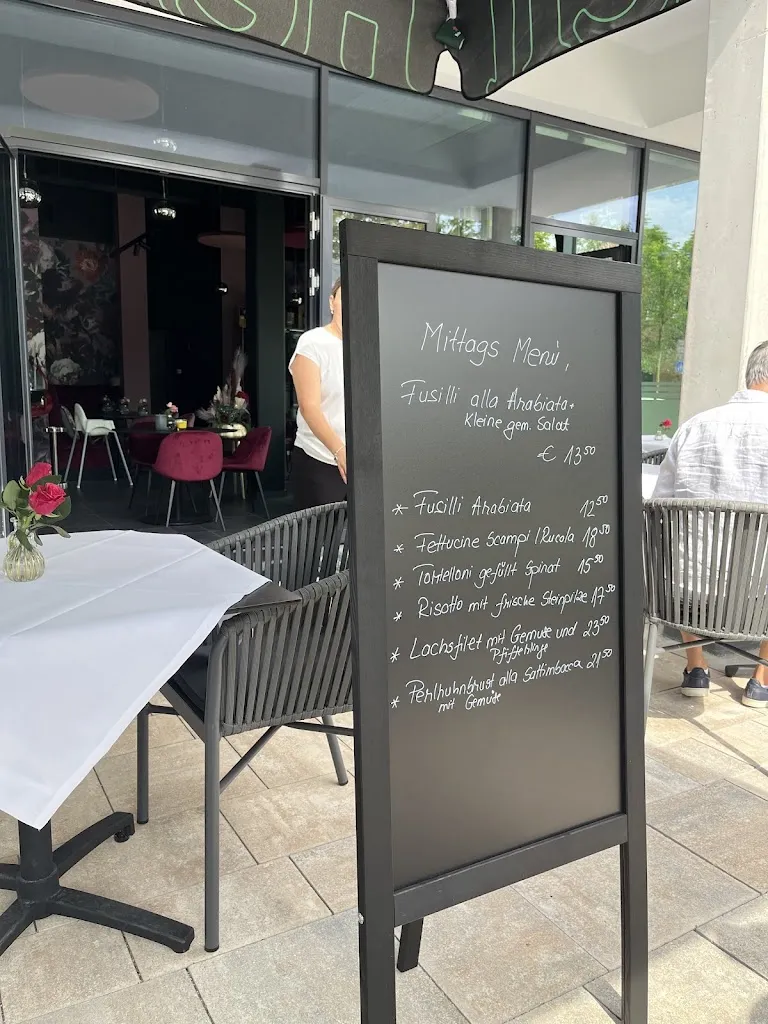 Mittags Menü,
Fusilli alla Arabiata +
Kleine gem. Salat
€ 13,50
* Fusilli Arabiata 12,50
* Fettucine Scampi / Rucola 18,50
* Tortelloni gefüllt Spinat 15,50
* Risotto mit frische Steinpilze 17,50
* Lachsfilet mit Gemüse und 23,50
Pfifferlinge
* Perlhuhnbrust alla Saltimbocca 21,50
mit Gemüse